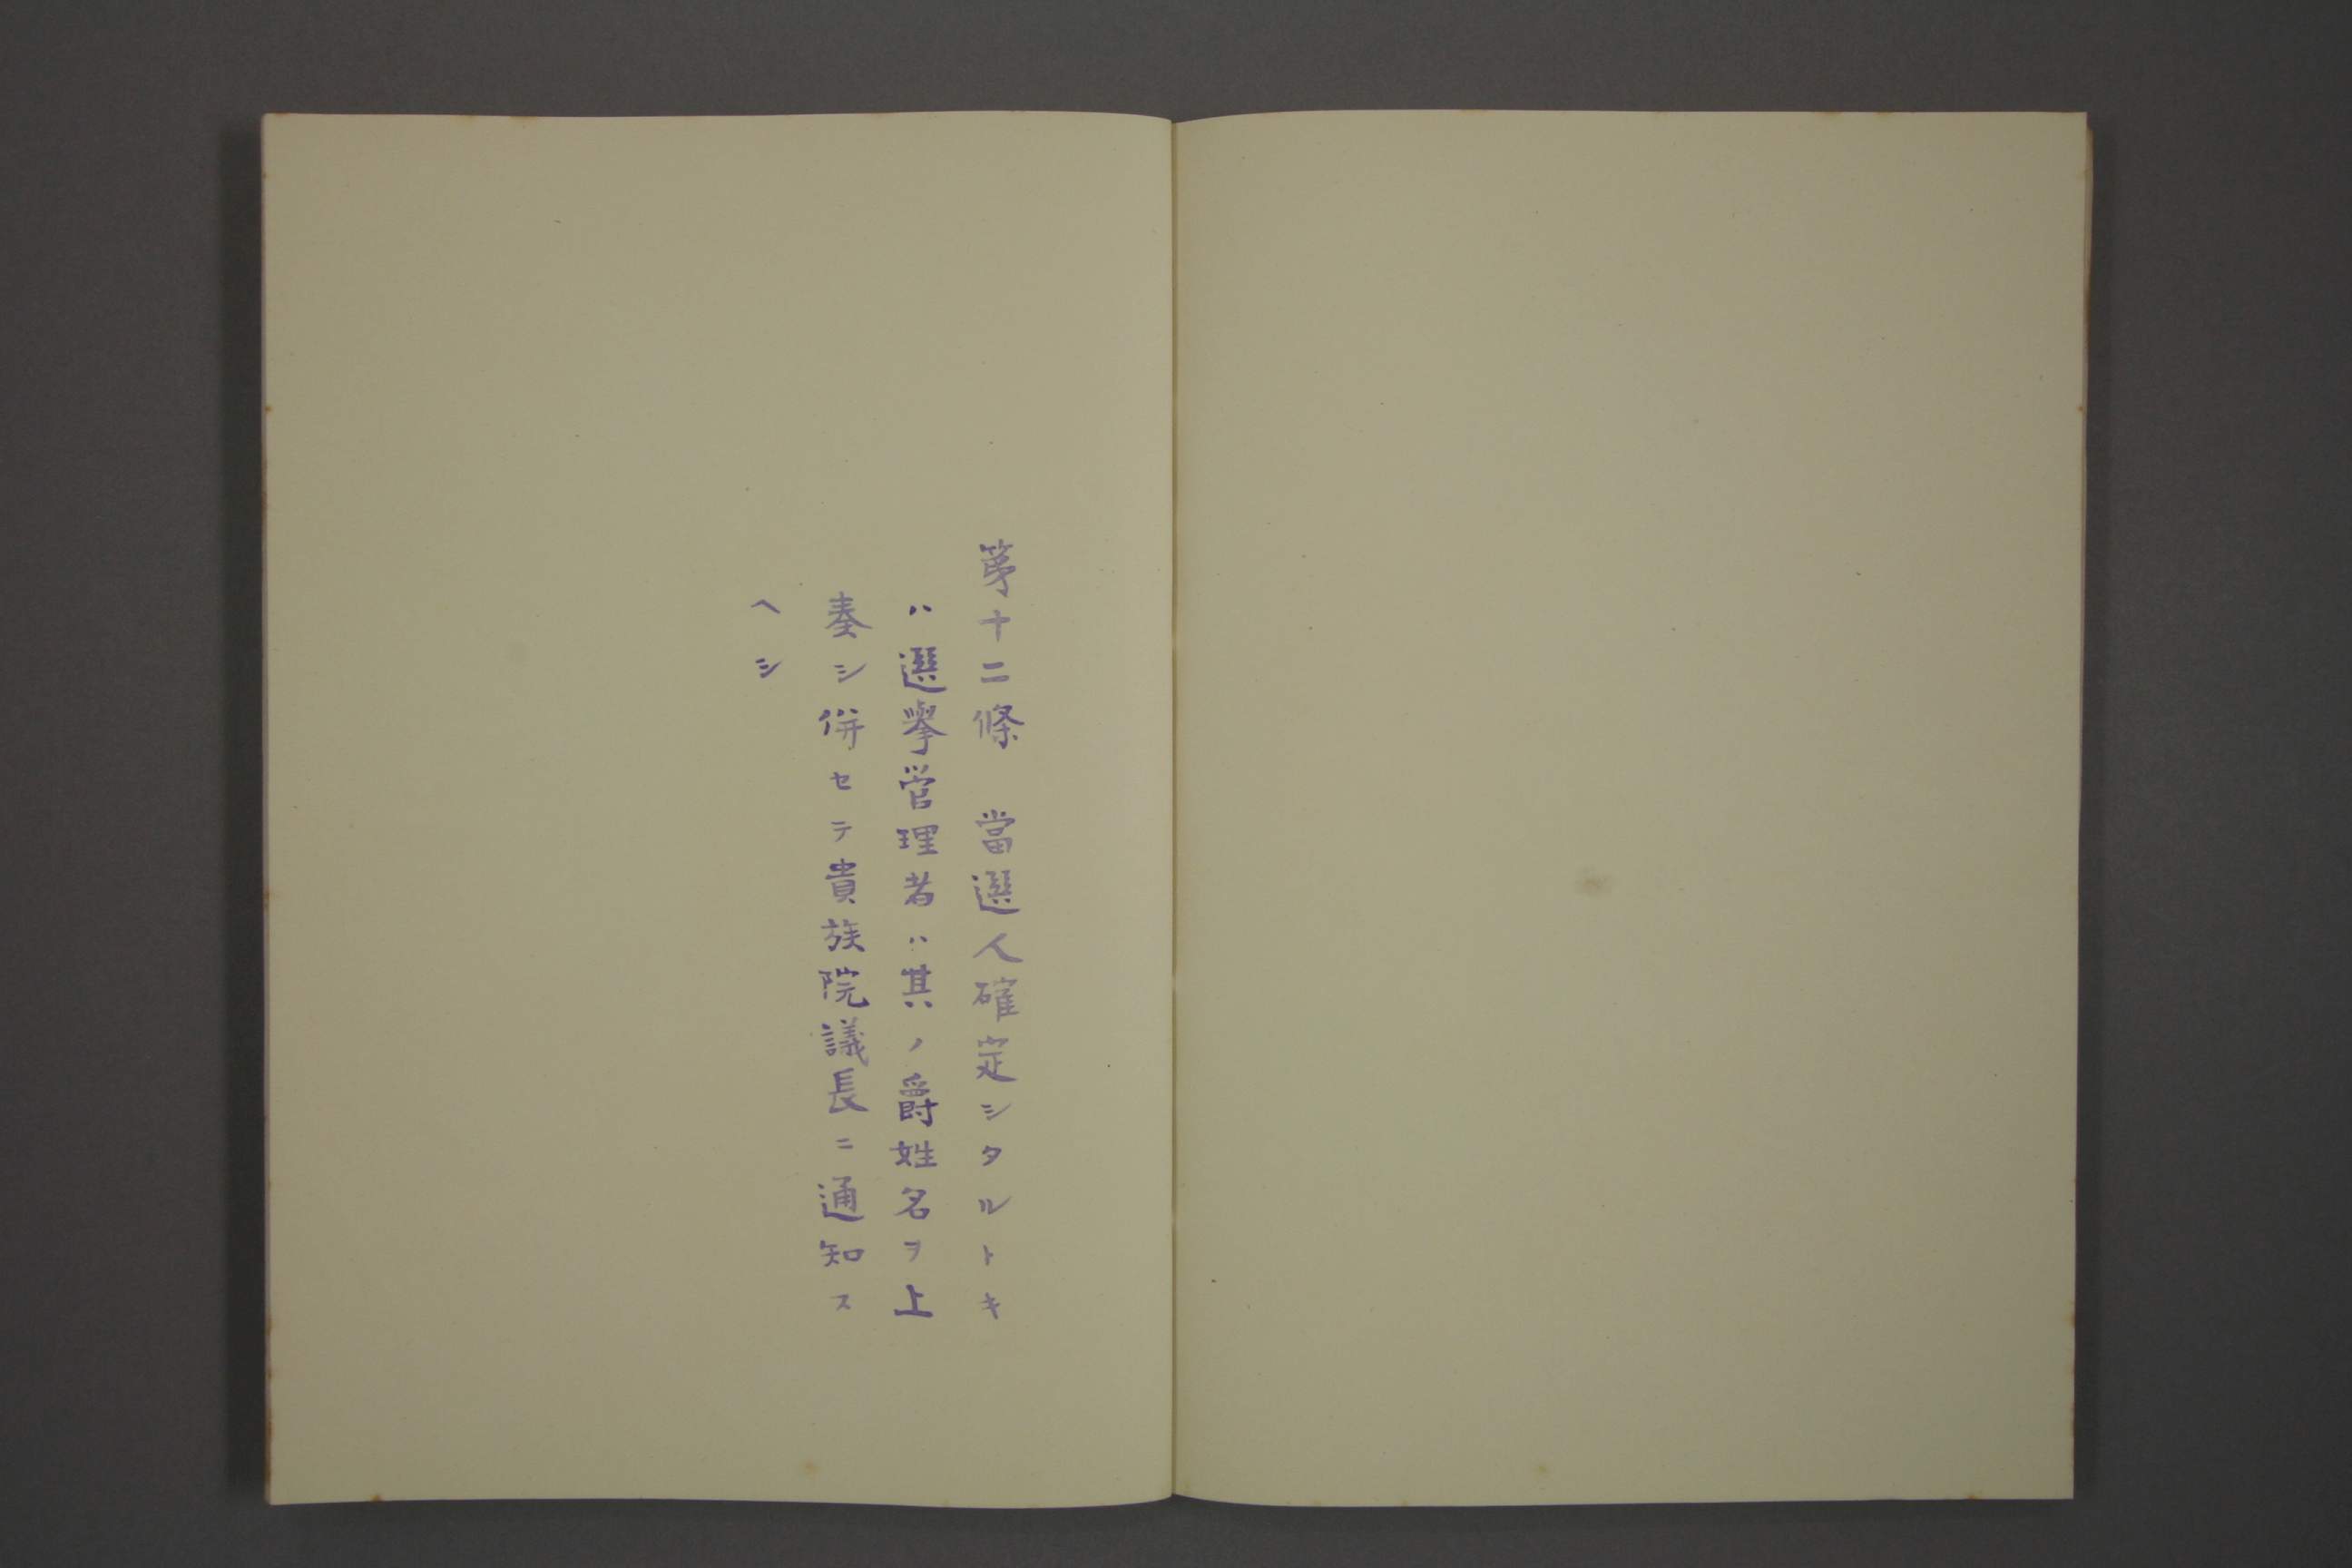 第十二條　當選人確定シタルトキ
ハ選擧管理者ハ其ノ爵姓名ヲ上
奏シ併セテ貴族院議長ニ通知ス
ヘシ